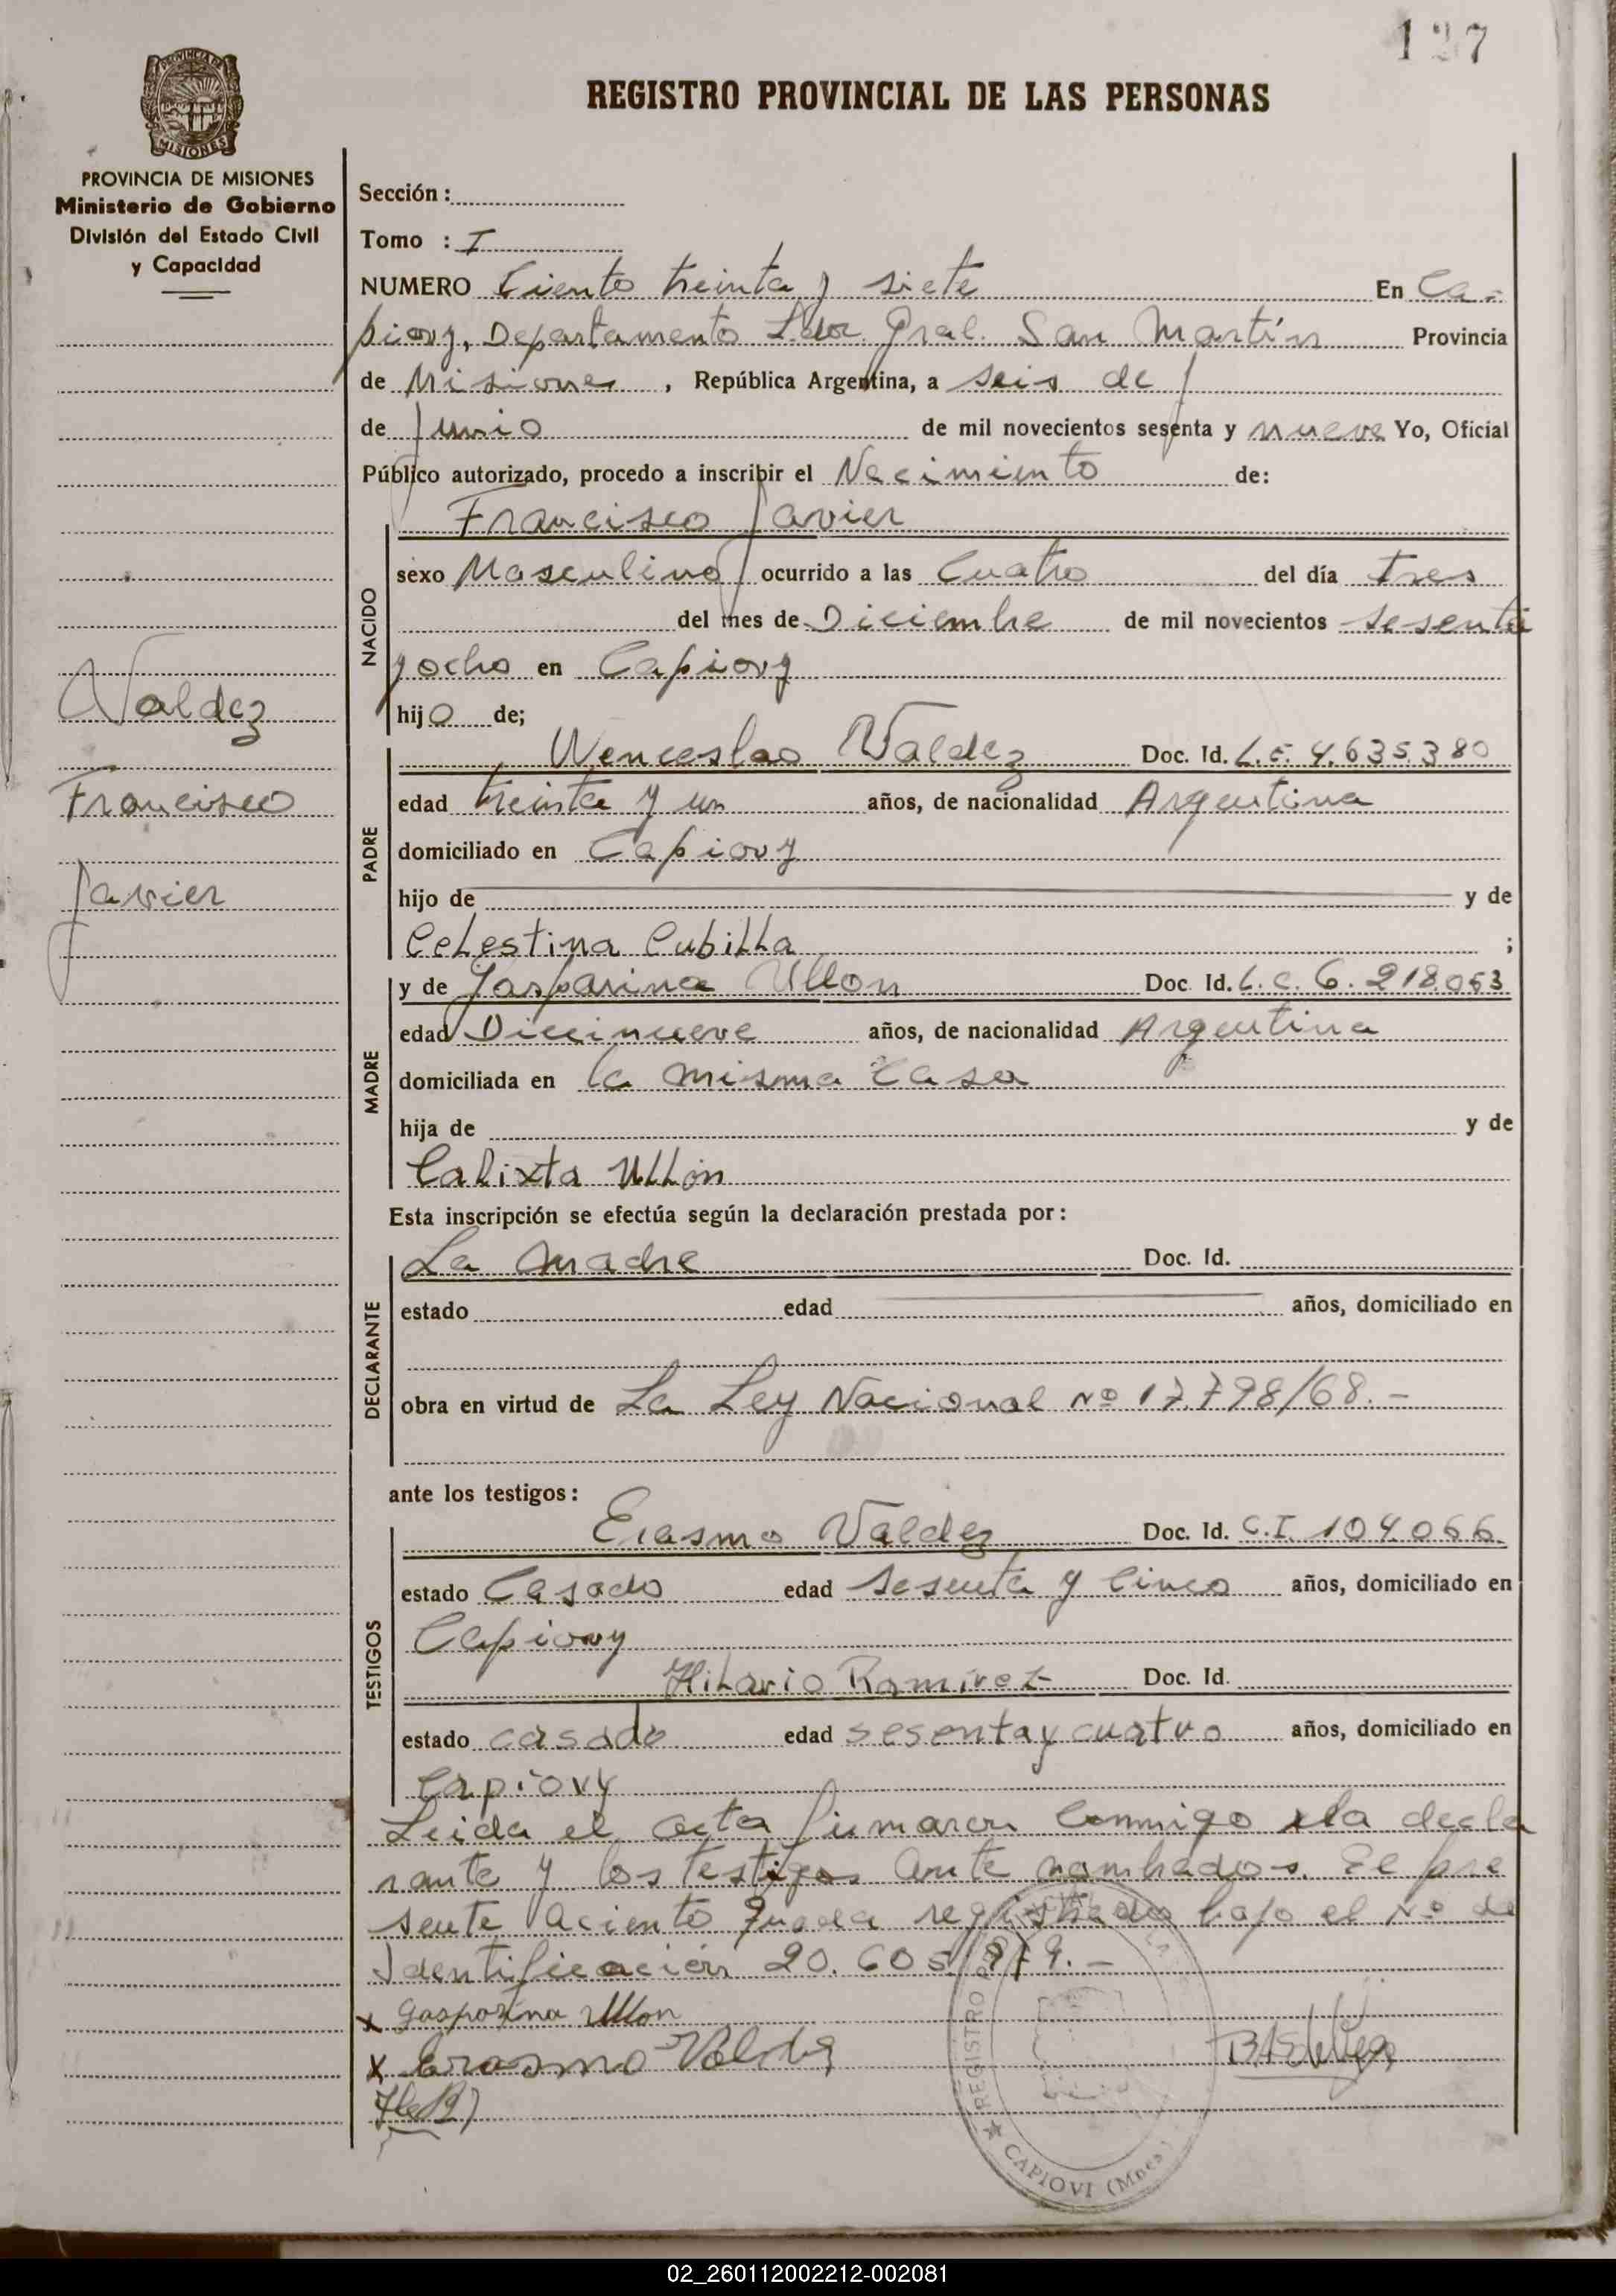 127
PROVINCIA DE
MISIONES
REGISTRO PROVINCIAL DE LAS PERSONAS
PROVINCIA DE MISIONES
Ministerio de Gobierno
División del Estado Civil
y Capacidad
Sección :
Tomo : I
NUMERO Ciento treinta y siete En Ca-
piovy, Departamento Ldor. Gral. San Martín Provincia
de Misiones , República Argentina, a seis de
de Junio de mil novecientos sesenta y nueve Yo, Oficial
Público autorizado, procedo a inscribir el Nacimiento de:
Francisco Javier
NACIDO
sexo Masculino ocurrido a las Cuatro del día tres
del mes de Diciembre de mil novecientos sesenta
y ocho en Capiovy
hijo de;
Valdez
Francisco
Javier
PADRE
Wenceslao Valdez Doc. Id. L.E. 4.635.380
edad treinta y un años, de nacionalidad Argentina
domiciliado en Capiovy
hijo de y de
Celestina Cubilla ;
MADRE
y de Gasparina Ullon Doc. Id. L.C. 6.218.053
edad Diecinueve años, de nacionalidad Argentina
domiciliada en la misma casa
hija de y de
Calixta Ullón
Esta inscripción se efectúa según la declaración prestada por :
DECLARANTE
La madre Doc. Id.
estado edad años, domiciliado en
obra en virtud de La Ley Nacional Nº 17.798/68.-
ante los testigos :
TESTIGOS
Erasmo Valdez Doc. Id. C.I. 104.066
estado Casado edad sesenta y cinco años, domiciliado en
Capiovy
Hilario Ramirez Doc. Id.
estado casado edad sesenta y cuatro años, domiciliado en
Capiovy
Leida el acta firmaron conmigo la decla
rante y los testigos ante nombrados. El pre
sente aciento queda registrado bajo el Nº de
Identificación 20.605.979.-
x Gasparina Ullon
x Erasmo Valdez
REGISTRO
CAPIOVI (Mnes)
02_260112002212-002081